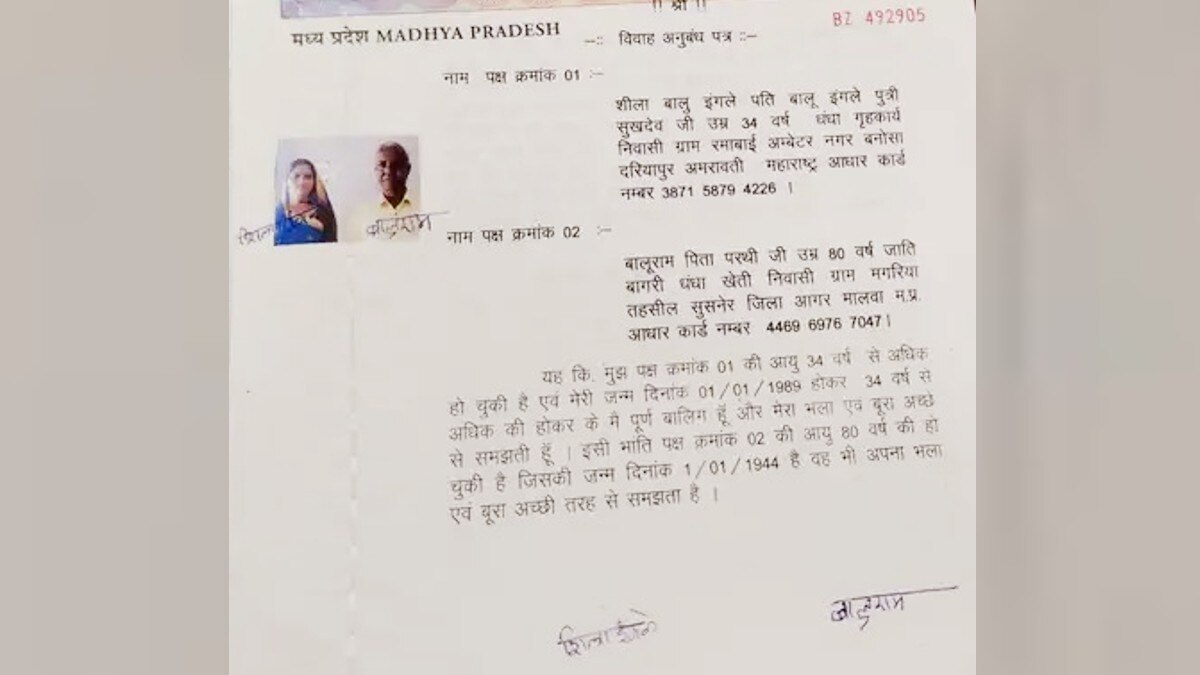 !! श्री !!
BZ 492905
मध्य प्रदेश MADHYA PRADESH
–:: विवाह अनुबंध पत्र ::–
नाम पक्ष क्रमांक 01 :–
शीला बालु इंगले पति बालू इंगले पुत्री
सुखदेव जी उम्र 34 वर्ष धंधा गृहकार्य
निवासी ग्राम रमाबाई अम्बेटर नगर बनोसा
दरियापुर अमरावती महाराष्ट्र आधार कार्ड
नम्बर 3871 5879 4226 ।
बालुराम
नाम पक्ष क्रमांक 02 :–
बालूराम पिता परथी जी उम्र 80 वर्ष जाति
बागरी धंधा खेती निवासी ग्राम मगरिया
तहसील सुसनेर जिला आगर मालवा म.प्र.
आधार कार्ड नम्बर 4469 6976 7047।
यह कि. मुझ पक्ष क्रमांक 01 की आयु 34 वर्ष से अधिक
हो चुकी है एवं मेरी जन्म दिनांक 01/01/1989 होकर 34 वर्ष से
अधिक की होकर के मै पूर्ण बालिग हूँ और मेरा भला एवं बूरा अच्छे
से समझती हूँ । इसी भाति पक्ष क्रमांक 02 की आयु 80 वर्ष की हो
चुकी है जिसकी जन्म दिनांक 1/01/1944 है वह भी अपना भला
एवं बूरा अच्छी तरह से समझता है ।
बालुराम
शिला इंगले